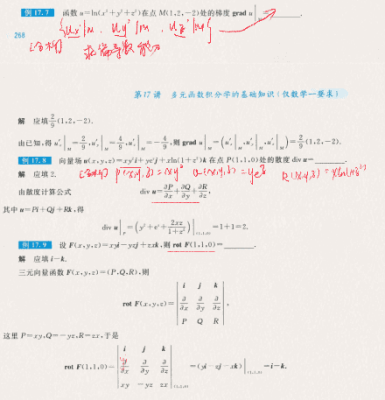 例17.7 函数 u=ln(x²+y²+z²)在点 M(1,2,-2)处的梯度 grad u|_M=
{u'x|M, u'y|M, u'z|M}
268
求偏导数能力
第17讲 多元函数积分学的基础知识(仅数学一要求)
解 应填 2/9(1,2,-2).
由已知,得 u'x|_M=2/9,u'y|_M=4/9,u'z|_M=-4/9,则 grad u|_M=(u'x|_M,u'y|_M,u'z|_M)=2/9(1,2,-2).
例17.8 向量场 u(x,y,z)=xy²i+ye^z j+xln(1+z²)k 在点 P(1,1,0)处的散度 div u=________.
P(x,y,z)=xy² Q(x,y,z)=ye^z R(x,y,z)=xln(1+z²)
解 应填 2.
由散度计算公式 div u=∂P/∂x+∂Q/∂y+∂R/∂z,
其中 u=Pi+Qj+Rk,得
div u|_P=(y²+e^z+2xz/(1+z²))|_(1,1,0)=1+1=2.
例17.9 设 F(x,y,z)=xyi-yzj+zxk,则 rot F(1,1,0)=________.
解 应填 i-k.
三元向量函数 F(x,y,z)=(P,Q,R),则
i j k
rot F(x,y,z)= ∂/∂x ∂/∂y ∂/∂z ,
P Q R
这里 P=xy,Q=-yz,R=zx,于是
i j k
rot F(1,1,0)= ∂/∂x ∂/∂y ∂/∂z =(yi-zj-xk)|_(1,1,0)=i-k.
xy -yz zx |_(1,1,0)